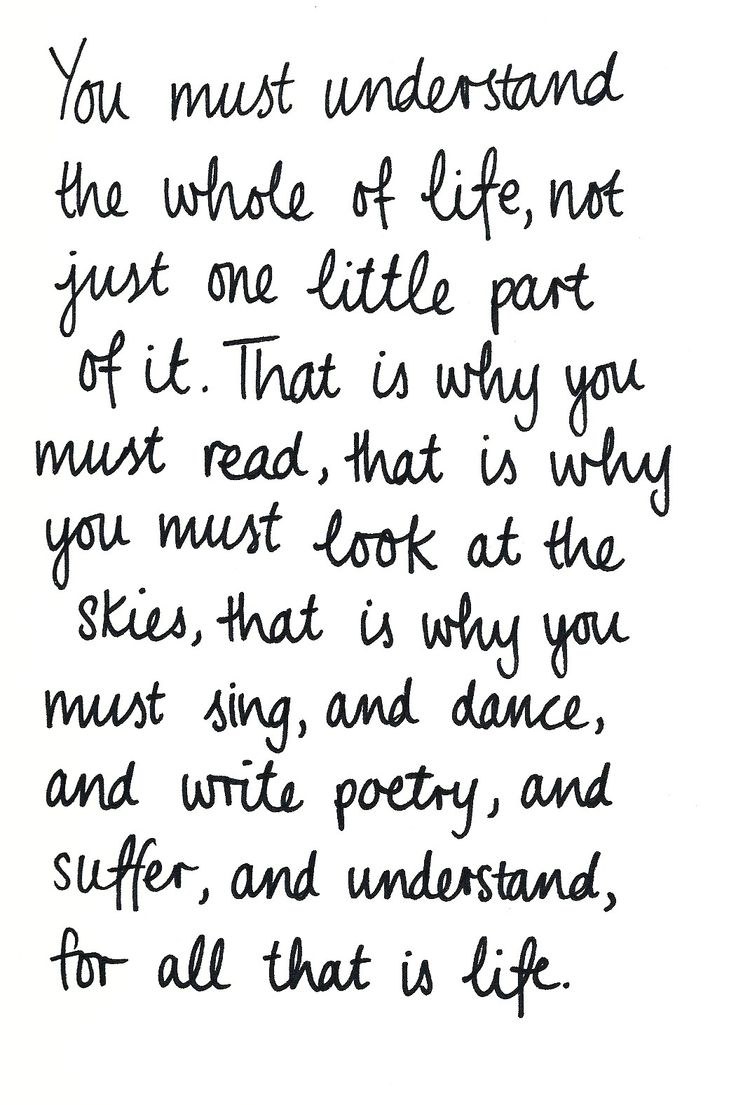 You must understand
the whole of life, not
just one little part
of it. That is why you
must read, that is why
you must look at the
skies, that is why you
must sing, and dance,
and write poetry, and
suffer, and understand,
for all that is life.